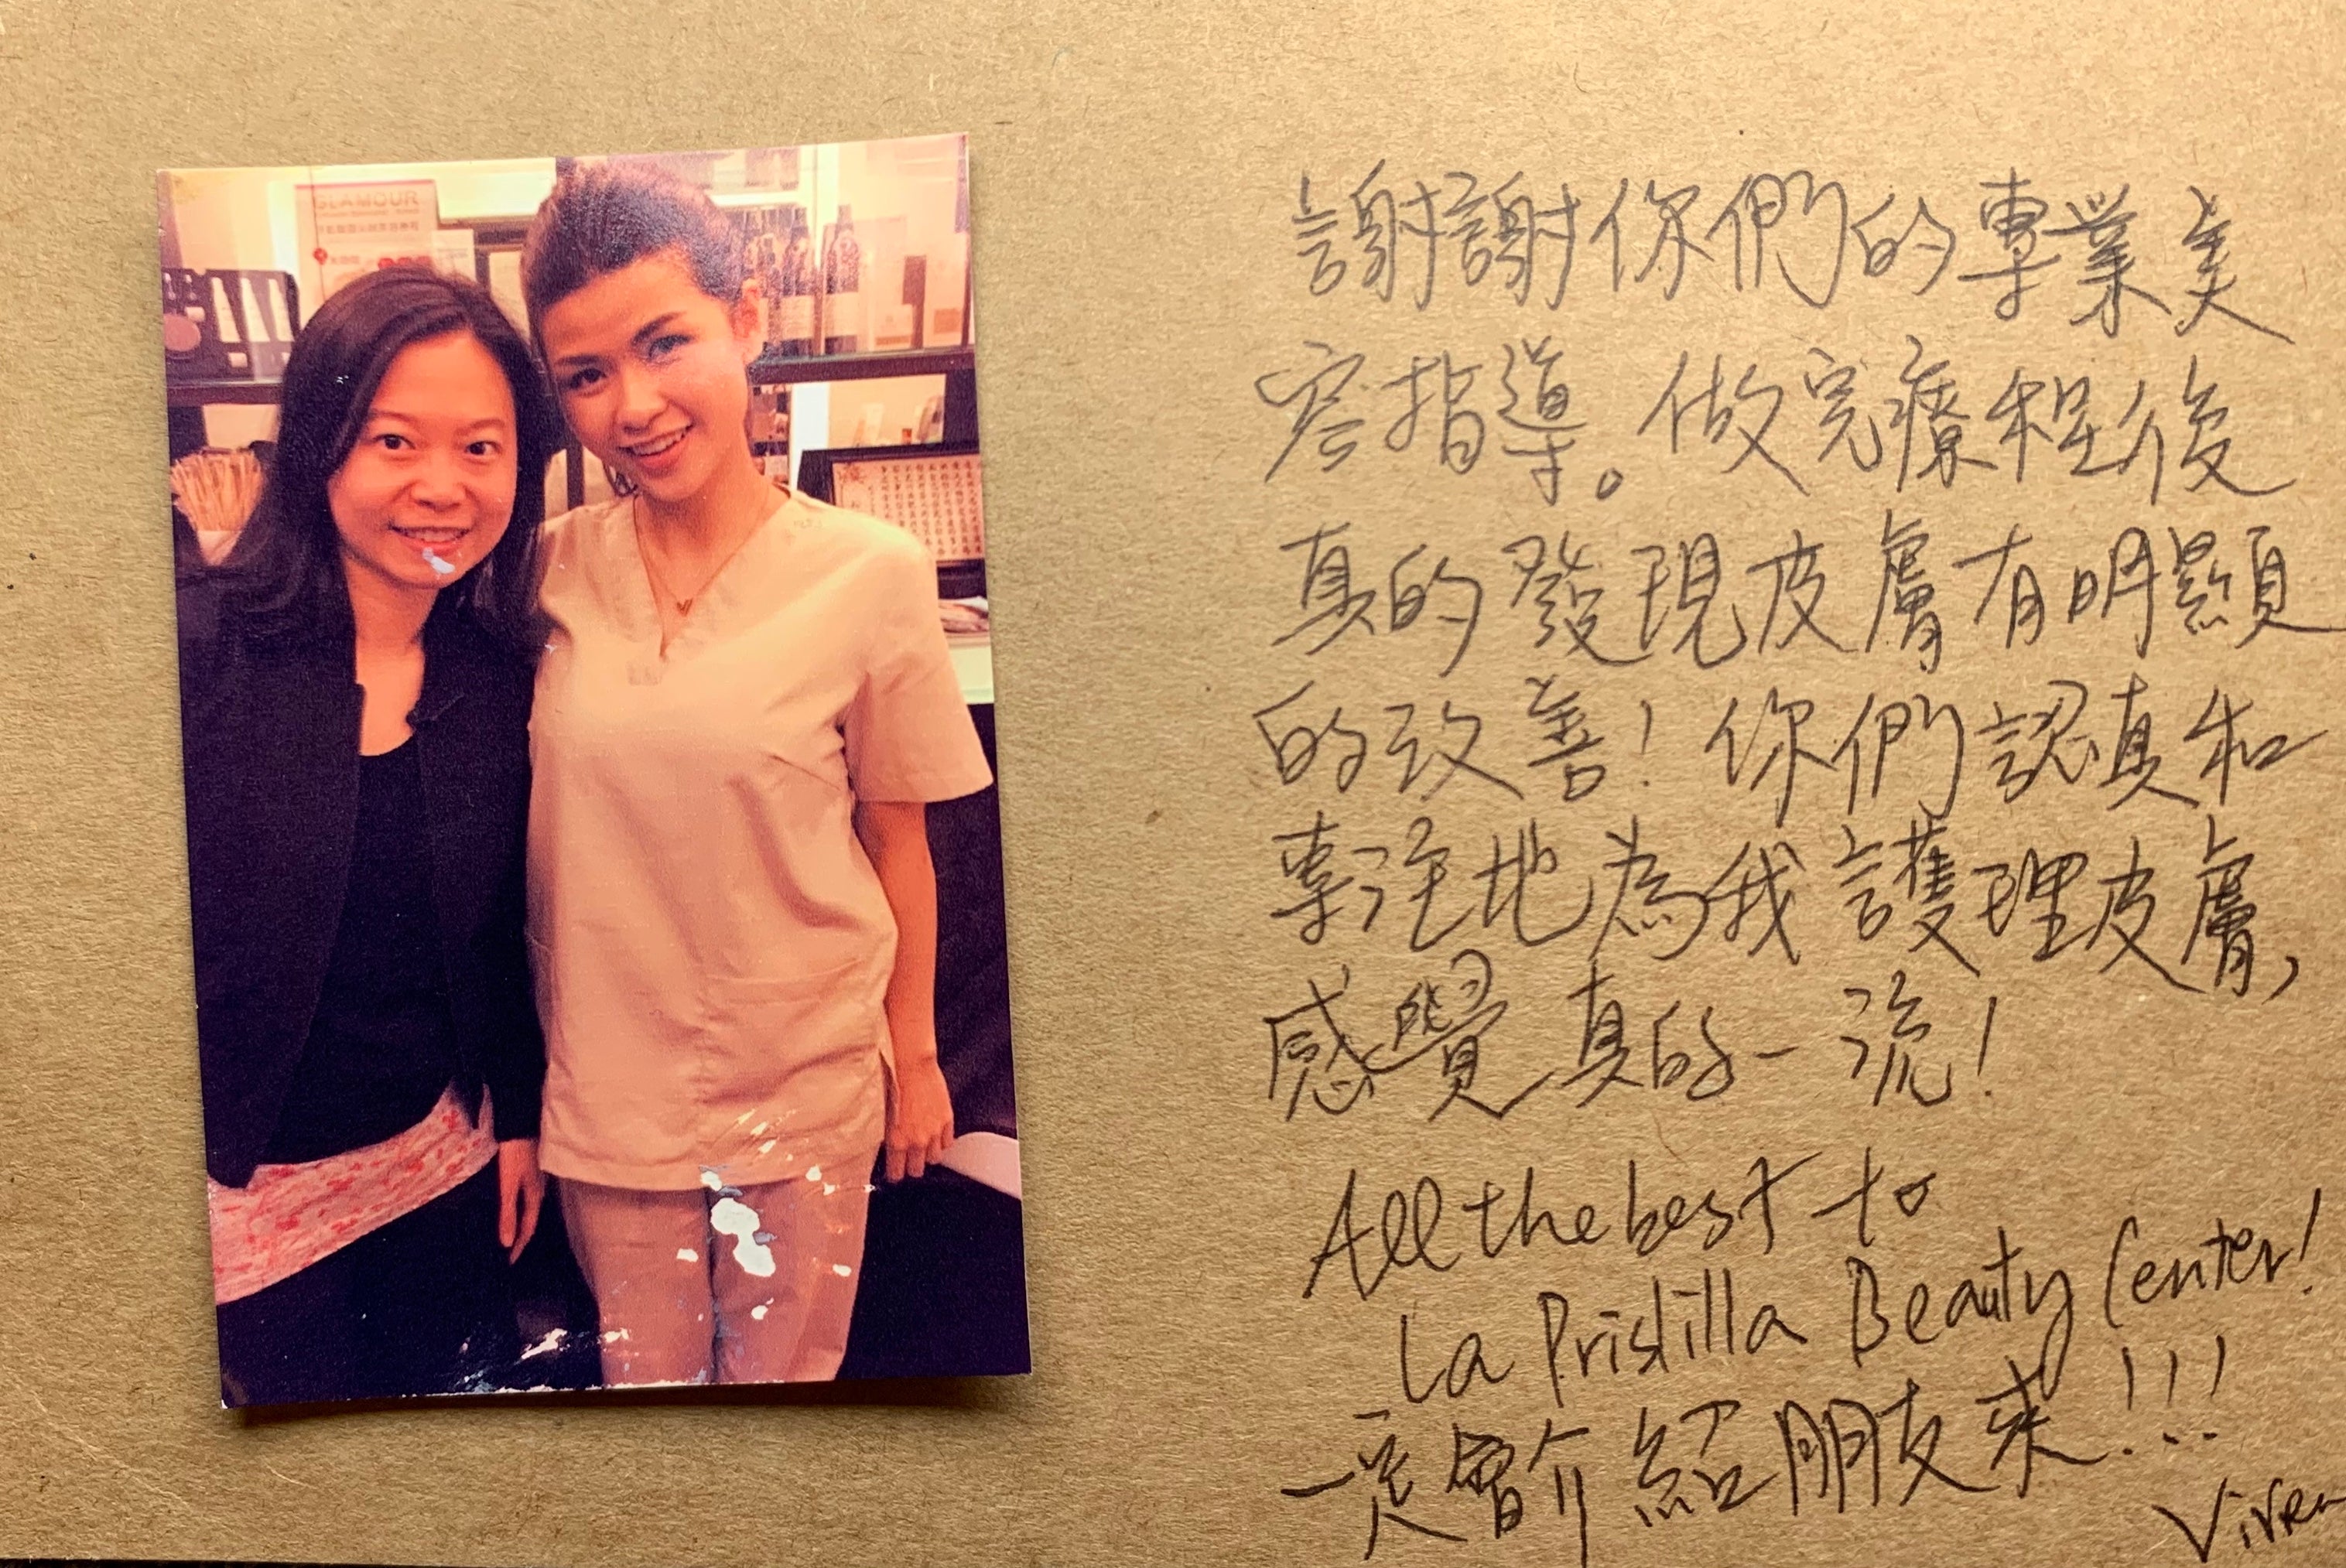 GLAMOUR
謝謝你們的專業美
容指導。做完療程後
真的發現皮膚有明顯
的改善！你們認真和
專注地為我護理皮膚，
感覺真的一流！
All the best to
La Pristilla Beauty Center!
一定會介紹朋友來！！！